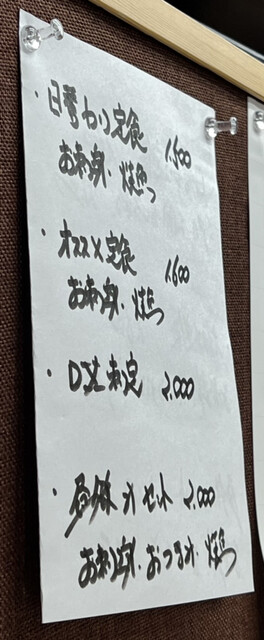 ・日替わり定食 1.500
お刺身・焼魚
・オススメ定食 1.600
お刺身・焼魚
・DX 定 2.000
・セット 2.000
お刺身・おつまみ・焼魚